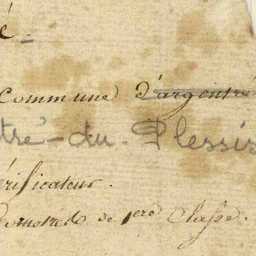 é.
commune d'argentré
tré-du-Plessis
érificateur.
Géometre de 1ere Classe.